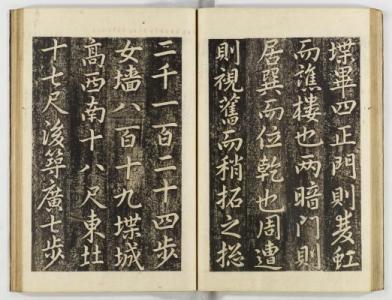 堞畢四正門則羙虹
而譙樓也两暗門則
居巽而位乾也周遭
則視舊而稍拓之總
三千一百二十四步
女墙八百十九堞城
髙西南十八尺東北
十七尺後築廣七步